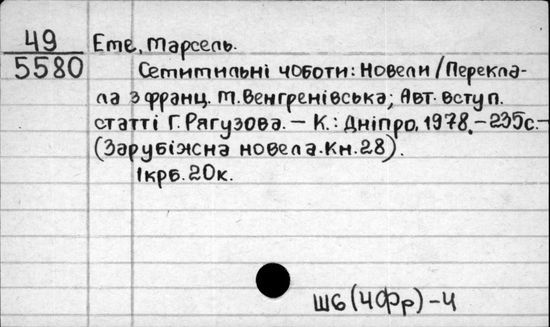 49 Еме, Марсель.
5580 Семимильні чоботи: Новели / Перекла-
ла з франц. М. Венгренівська; Авт. вступ.
статті Г. Рягузова. – К.: Дніпро, 1978. – 235с. –
(Зарубіжна новела. Кн. 28).
1крб. 20к.
Ш6(4Фр)-4